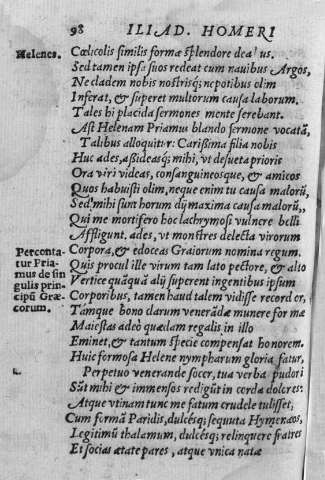 98 ILIAD. HOMERI
Helenes. Cœlicolis similis formæ splendore deabus.
Sed tamen ipsa suos redeat cum nauibus Argos,
Ne cladem nobis nostrisq; nepotibus olim
Inferat, & superet multorum causa laborum.
Tales hi placida sermones mente serebant.
Ast Helenam Priamus blando sermone vocatā,
Talibus alloquitur: Carißima filia nobis
Huc ades, aßideasq; mihi, vt desueta prioris
Ora viri videas, consanguineosque, & amicos
Quos habuisti olim, neque enim tu causa malorū,
Sed mihi sunt horum dij maxima causa malorū,
Qui me mortifero hoc lachrymosi vulnere belli
Affligunt. ades, vt monstres delecta virorum
Perconta- Corpora, & edoceas Graiorum nomina regum.
tur Pria- Quis procul ille virum tam lato pectore, & alto
mus de sin Vertice quāquā alij superent ingentibus ipsum
gulis prin- Corporibus, tamen haud talem vidisse recordor,
cipū Græ- Tamque bono darum venerādæ munere formæ
corum. Maiestas adeò quædam regalis in illo
Eminet, & tantum specie compensat honorem.
Huic formosa Helene nympharum gloria fatur,
Perpetuo venerande socer, tua verba pudori
Sūt mihi & immensos redigūt in corda dolores:
Atque vtinam tunc me fatum crudele tulisset,
Cum formā Paridis, dulcesq; sequuta Hymenæos,
Legitimū thalamum, dulcesq; relinquere fratres
Et socias ætate pares, atque vnica natæ